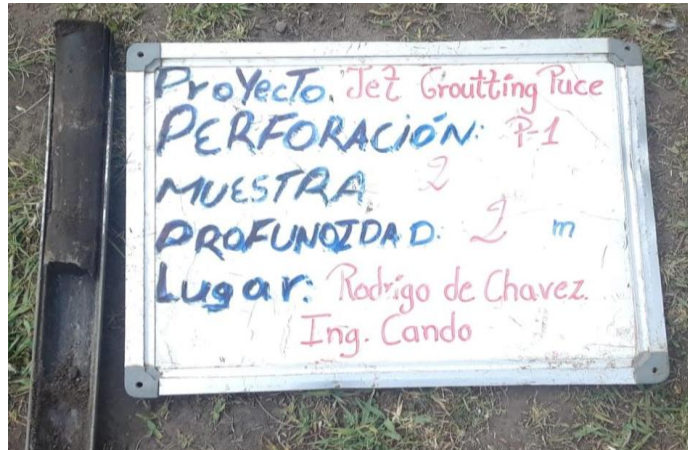 Proyecto. Jet Groutting Puce
PERFORACIÓN: P-1
MUESTRA 2
PROFUNDIDAD: 2 m
Lugar: Rodrigo de Chavez.
Ing. Cando